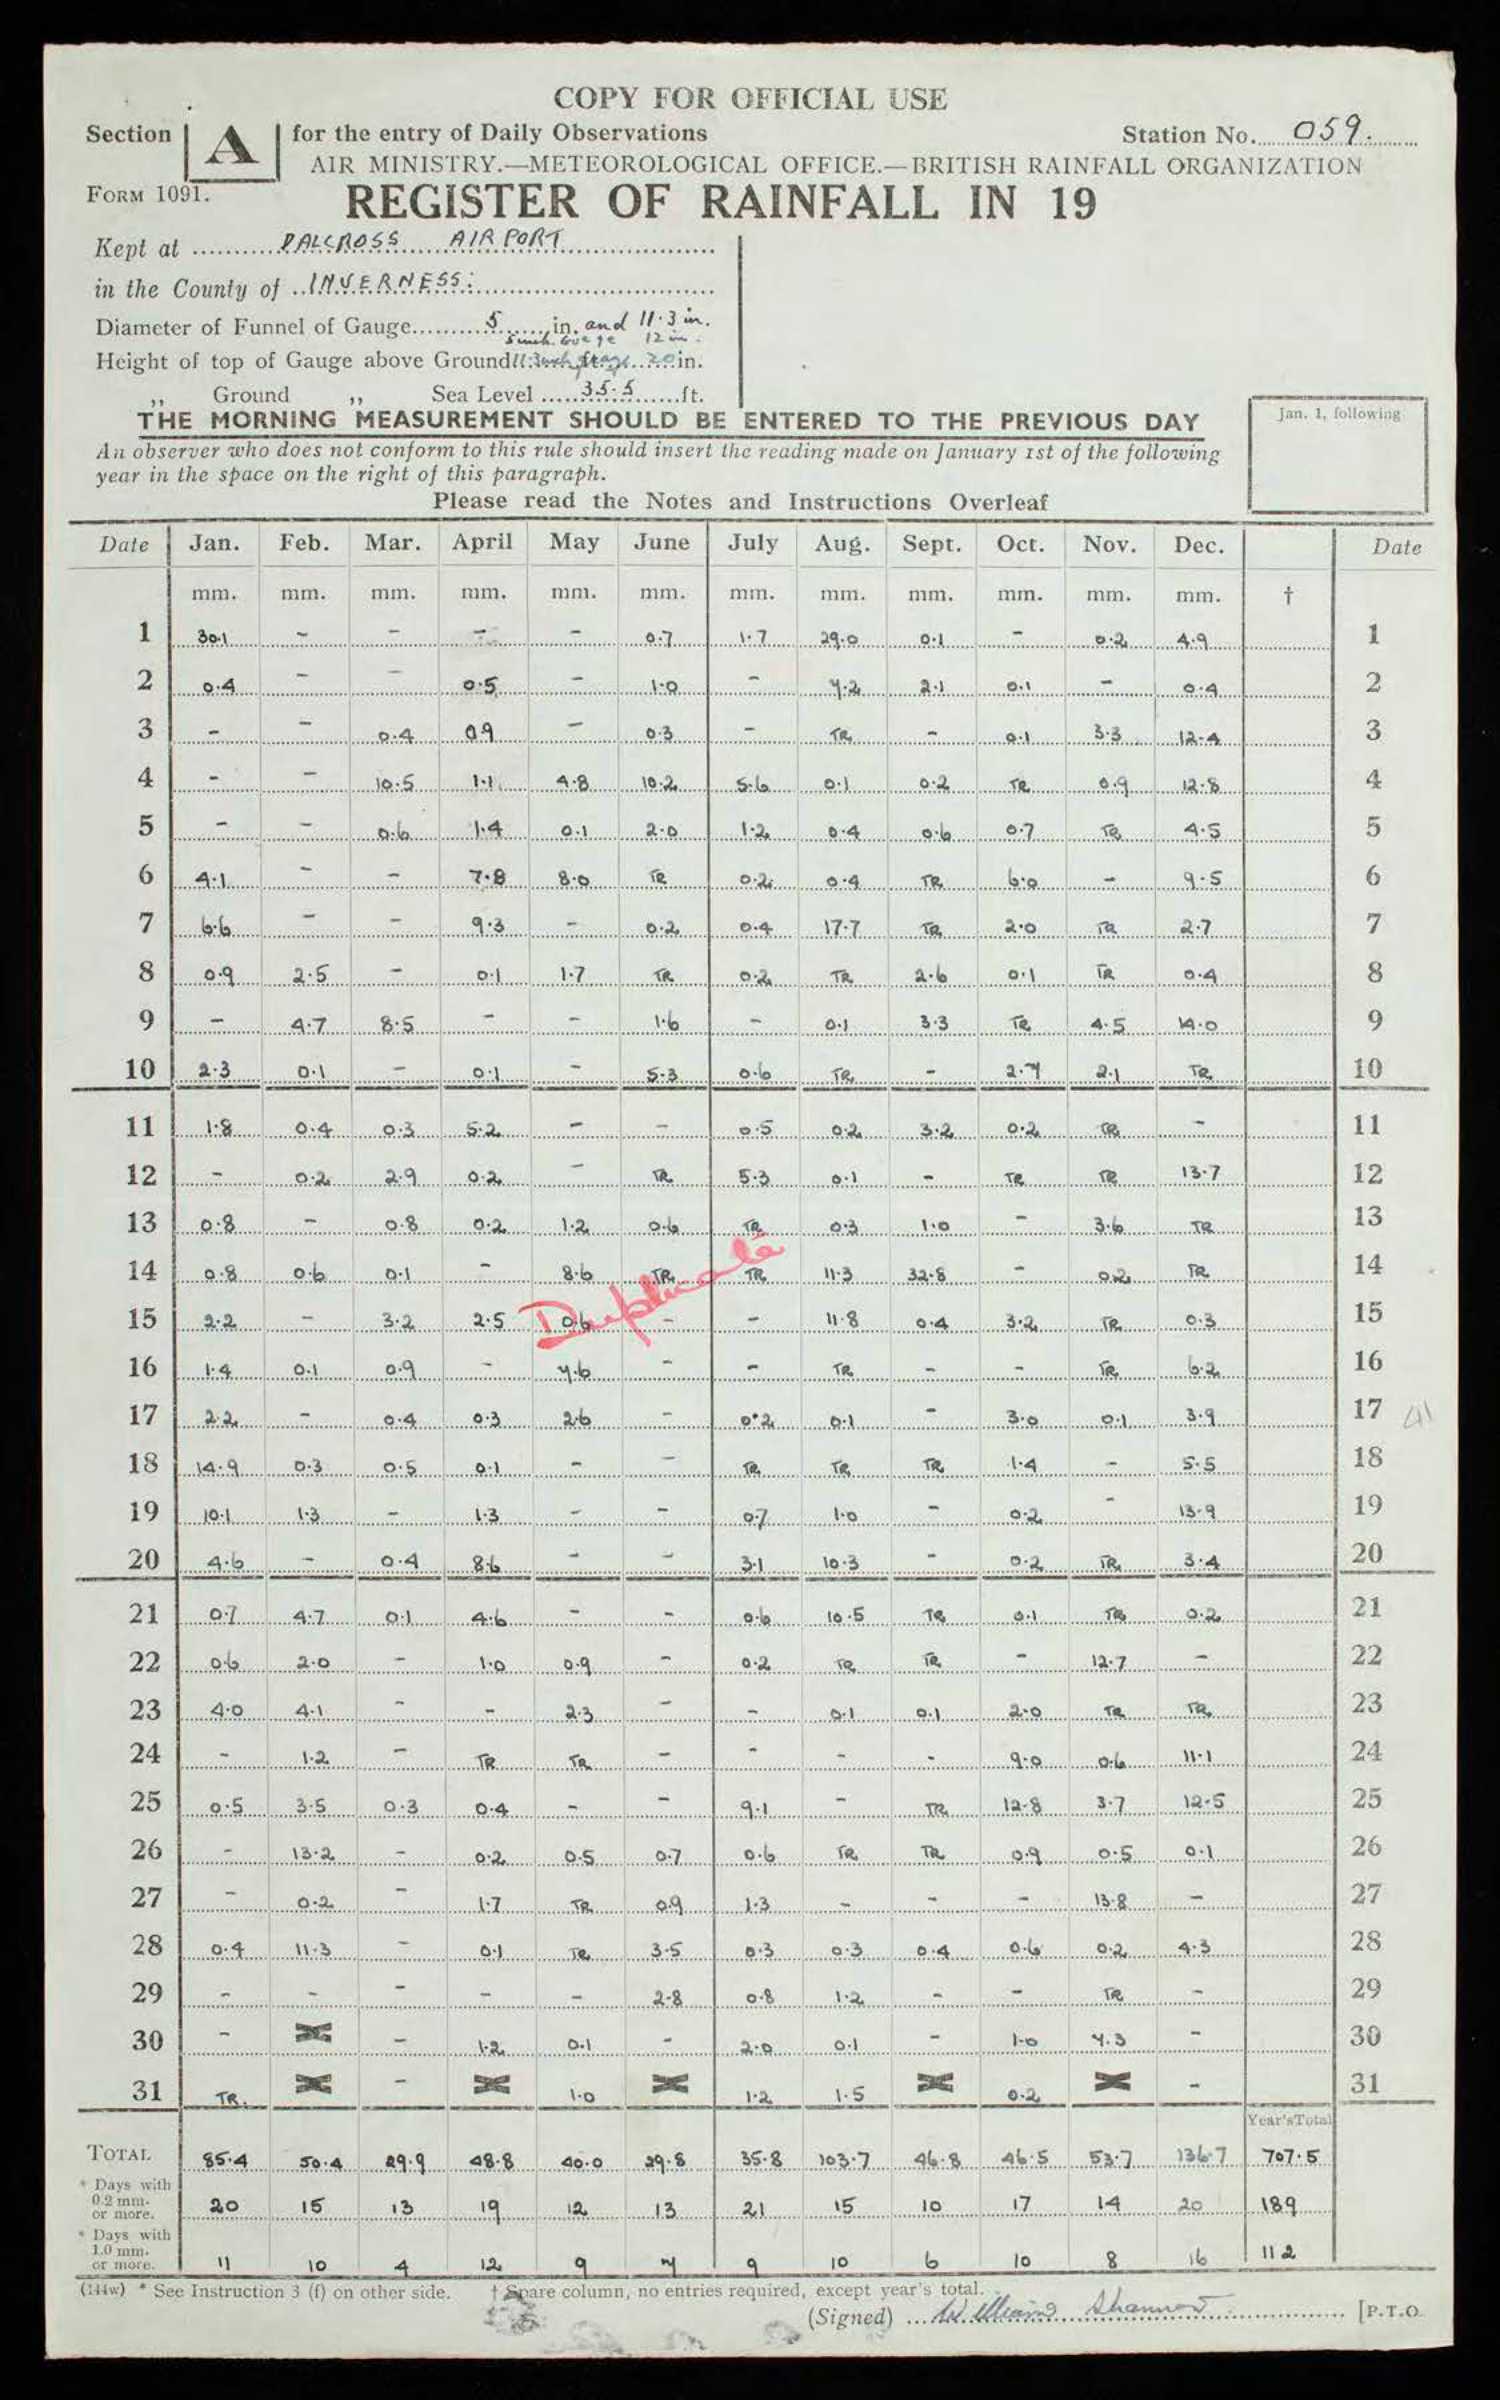 COPY FOR OFFICIAL USE
Section A for the entry of Daily Observations Station No. 059.
AIR MINISTRY.—METEOROLOGICAL OFFICE.—BRITISH RAINFALL ORGANIZATION
FORM 1091. REGISTER OF RAINFALL IN 19
Kept at DALCROSS AIRPORT
in the County of INVERNESS:
Diameter of Funnel of Gauge 5 in. and 11.3 in.
5 inch. Gauge 12 in.
Height of top of Gauge above Ground 11.3 inch 20 in.
„ Ground „ Sea Level 35.5 ft.
THE MORNING MEASUREMENT SHOULD BE ENTERED TO THE PREVIOUS DAY
Jan. 1, following
An observer who does not conform to this rule should insert the reading made on January 1st of the following
year in the space on the right of this paragraph.
Please read the Notes and Instructions Overleaf
Date Jan. Feb. Mar. April May June July Aug. Sept. Oct. Nov. Dec. Date
mm. mm. mm. mm. mm. mm. mm. mm. mm. mm. mm. mm. †
1 30.1 - - - - 0.7 1.7 29.0 0.1 - 0.2 4.9 1
2 0.4 - - 0.5 - 1.0 - 4.2 2.1 0.1 - 0.4 2
3 - - 0.4 0.9 - 0.3 - TR - 0.1 3.3 12.4 3
4 - - 10.5 1.1 4.8 10.2 5.6 0.1 0.2 TR 0.9 12.8 4
5 - - 0.6 1.4 0.1 2.0 1.2 0.4 0.6 0.7 TR 4.5 5
6 4.1 - - 7.8 8.0 TR 0.2 0.4 TR 6.0 - 9.5 6
7 6.6 - - 9.3 - 0.2 0.4 17.7 TR 2.0 TR 2.7 7
8 0.9 2.5 - 0.1 1.7 TR 0.2 TR 2.6 0.1 TR 0.4 8
9 - 4.7 8.5 - - 1.6 - 0.1 3.3 TR 4.5 14.0 9
10 2.3 0.1 - 0.1 - 5.3 0.6 TR - 2.7 2.1 TR 10
11 1.8 0.4 0.3 5.2 - - 0.5 0.2 3.2 0.2 TR - 11
12 - 0.2 2.9 0.2 - TR 5.3 0.1 - TR TR 13.7 12
13 0.8 - 0.8 0.2 1.2 0.6 TR 0.3 1.0 - 3.6 TR 13
14 0.8 0.6 0.1 - 8.6 TR TR 11.3 32.8 - 0.2 TR 14
Duplicate
15 2.2 - 3.2 2.5 0.6 - - 11.8 0.4 3.2 TR 0.3 15
16 1.4 0.1 0.9 - 7.6 - - TR - - TR 6.2 16
17 2.2 - 0.4 0.3 2.6 - 0.2 0.1 - 3.0 0.1 3.9 17
18 14.9 0.3 0.5 0.1 - - TR TR TR 1.4 - 5.5 18
19 10.1 1.3 - 1.3 - - 0.7 1.0 - 0.2 - 13.9 19
20 4.6 - 0.4 8.6 - - 3.1 10.3 - 0.2 TR 3.4 20
21 0.7 4.7 0.1 4.6 - - 0.6 10.5 TR 0.1 TR 0.2 21
22 0.6 2.0 - 1.0 0.9 - 0.2 TR TR - 12.7 - 22
23 4.0 4.1 - - 2.3 - - 0.1 0.1 2.0 TR TR 23
24 - 1.2 - TR TR - - - - 9.0 0.6 11.1 24
25 0.5 3.5 0.3 0.4 - - 9.1 - TR 12.8 3.7 12.5 25
26 - 13.2 - 0.2 0.5 0.7 0.6 TR TR 0.9 0.5 0.1 26
27 - 0.2 - 1.7 TR 0.9 1.3 - - - 13.8 - 27
28 0.4 11.3 - 0.1 TR 3.5 0.3 0.3 0.4 0.6 0.2 4.3 28
29 - - - - - 2.8 0.8 1.2 - - TR - 29
30 - X - 1.2 0.1 - 2.0 0.1 - 1.0 7.3 - 30
31 TR. X - X 1.0 X 1.2 1.5 X 0.2 X - 31
Year's Total
TOTAL 85.4 50.4 29.9 48.8 40.0 29.8 35.8 103.7 46.8 46.5 53.7 136.7 707.5
* Days with
0.2 mm.
or more. 20 15 13 19 12 13 21 15 10 17 14 20 189
* Days with
1.0 mm.
or more. 11 10 4 12 9 7 9 10 6 10 8 16 112
(144w) * See Instruction 3 (f) on other side. † Spare column, no entries required, except year's total.
(Signed) William Shannon [P.T.O.